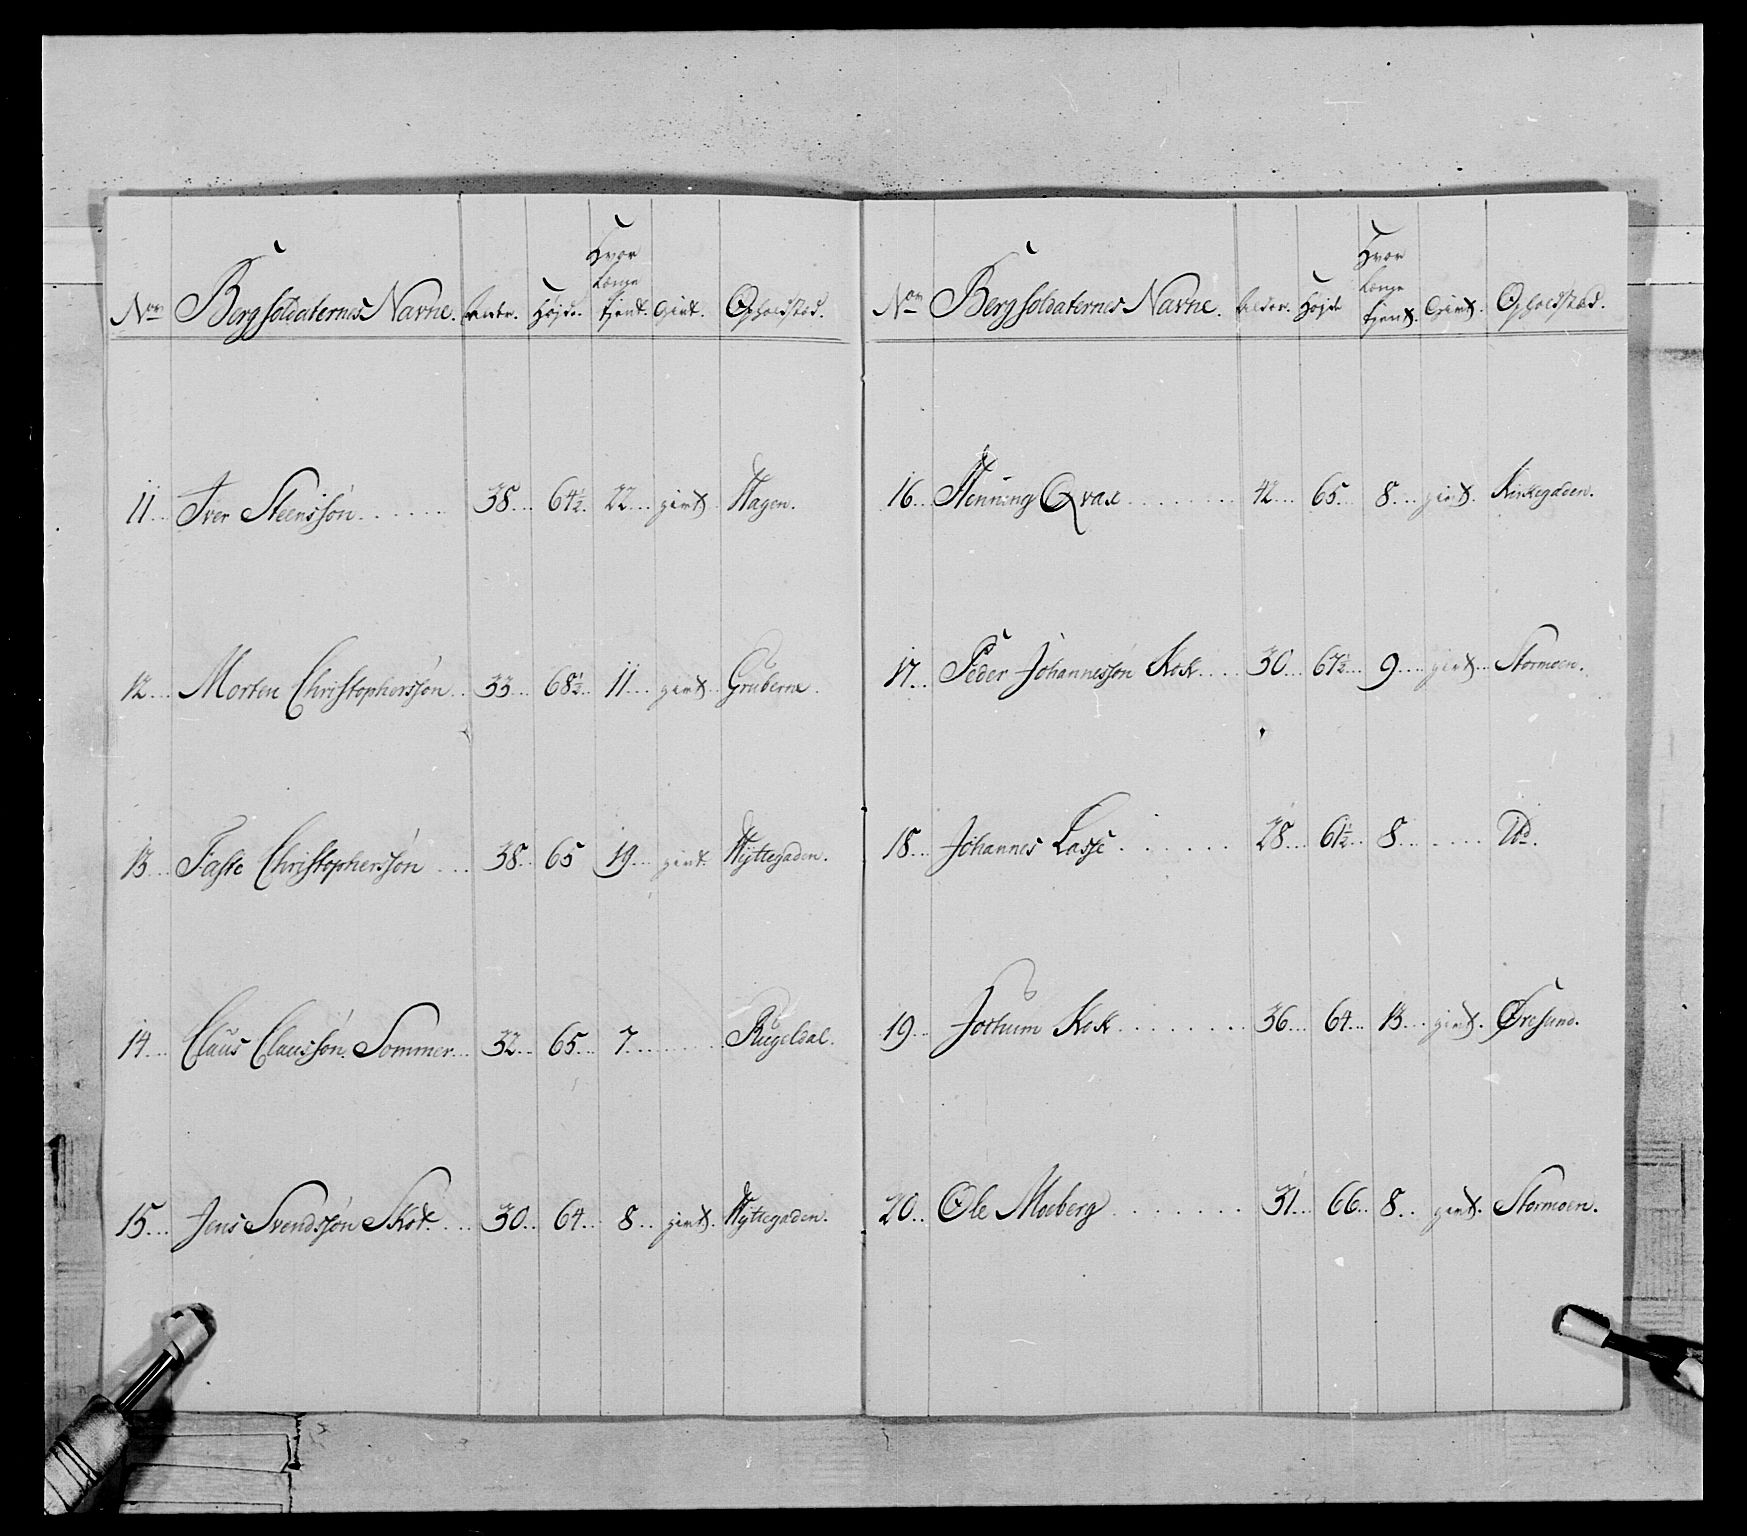 No Bergsoldaternes Navne. Alder. Højde. Hvor længe tjent. Givt. Opholdstæd.
11... Iver Steenssøn....... 38... 64½.. 22... givt. Hagen.
12... Morten Christophersøn.. 33... 68½.. 11... givt. Gruberne.
13... Faste Christopherssøn ... 38.. 65 19... givt. Hyttegaden.
14... Claus Claussøn Sommer... 32.. 65... 7........ Rugeldal.
15... Jens Svendssøn Skot... 30.. 64... 8.. givt. Hyttegaden.
No Bergsoldaternes Navne. Alder. Højde Hvor længe tjent. Givt. Opholdstæd.
16.. Henning Qvale........ 42... 65... 8... givt. Kirkegaden.
17... Peder Johannessøn Kokk.... 30 67½.. 9... givt. Stormoen.
18... Johannes Lasse........ 28... 61½.. 8....... Do.
19... Jochum Kokk........ 36... 64... 13... givt. Øresund.
20.. Ole Moeberg........ 31... 66.. 8.. givt. Stormoen.